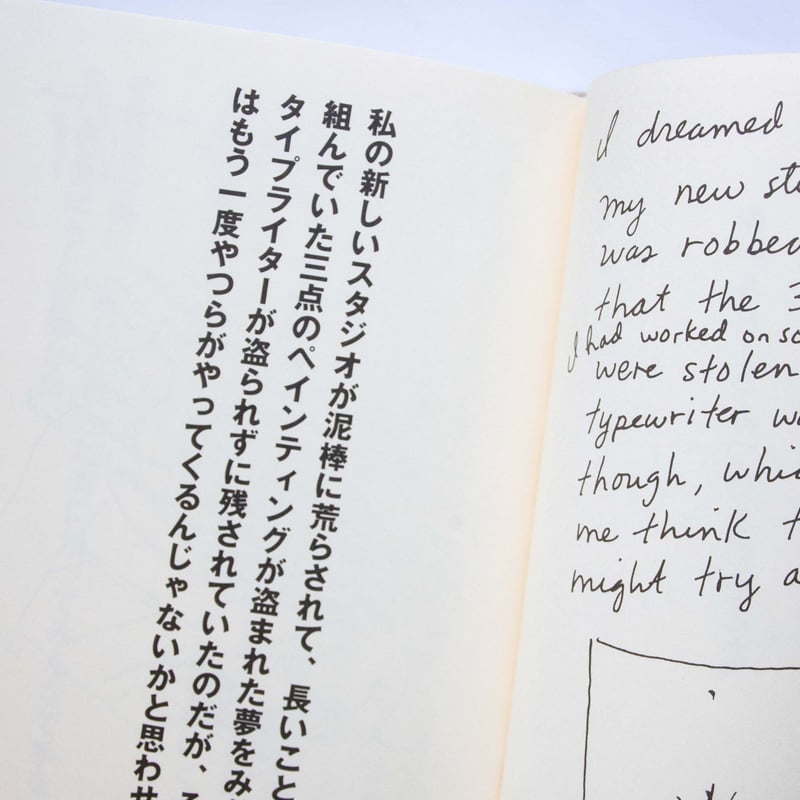 私の新しいスタジオが泥棒に荒らされて、長いこと
組んでいた三点のペインティングが盗まれた夢をみ
タイプライターが盗られずに残されていたのだが、
はもう一度やつらがやってくるんじゃないかと思わせ
I dreamed
my new
was robbed
that the 3
I had worked on so
were stolen
typewriter
though, whic
me think t
might try a